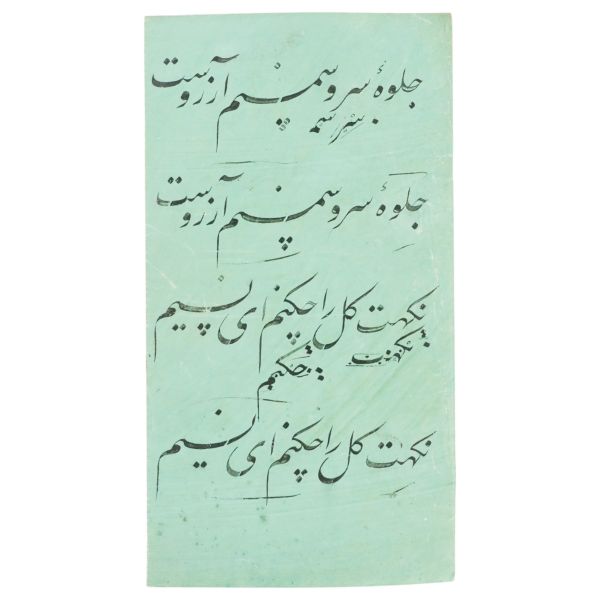 جلوهٔ سرو سمنم آرزوست
جلوهٔ سرو سمنم آرزوست
نکهت گل را چکنم ای نسیم
نکهت چکنم
نکهت گل را چکنم ای نسیم